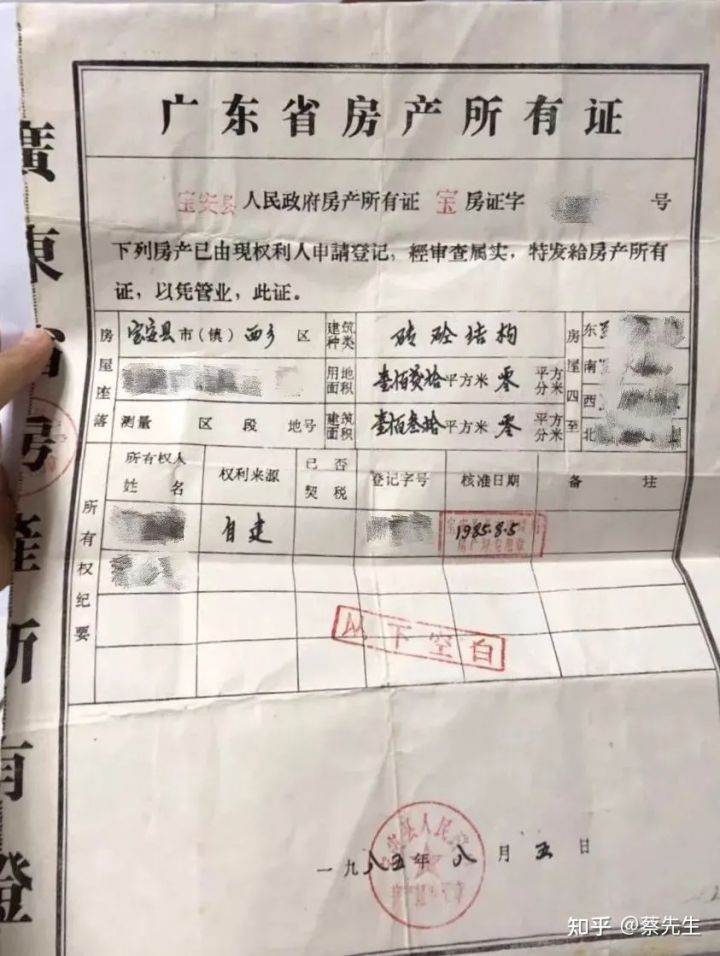 广东省房产所有证
宝安县人民政府房产所有证 宝 房证字 号
下列房产已由现权利人申請登记，經审查属实，特发給房产所有
证，以凭管业，此证。
房屋座落 宝安县市（镇）西乡 区 建筑种类 砖砼结构 房屋四至 东
用地面积 壹佰贰拾平方米零平方分米 南
西
测量 区 段 地号 建筑面积 壹佰叁拾平方米零平方分米 北
所有权纪要 所有权人姓名 权利来源 已否契税 登记字号 核准日期 备 注
自建 1985.8.5
以下空白
一九八五年八月五日
廣東省房產所有證
知乎 @蔡先生